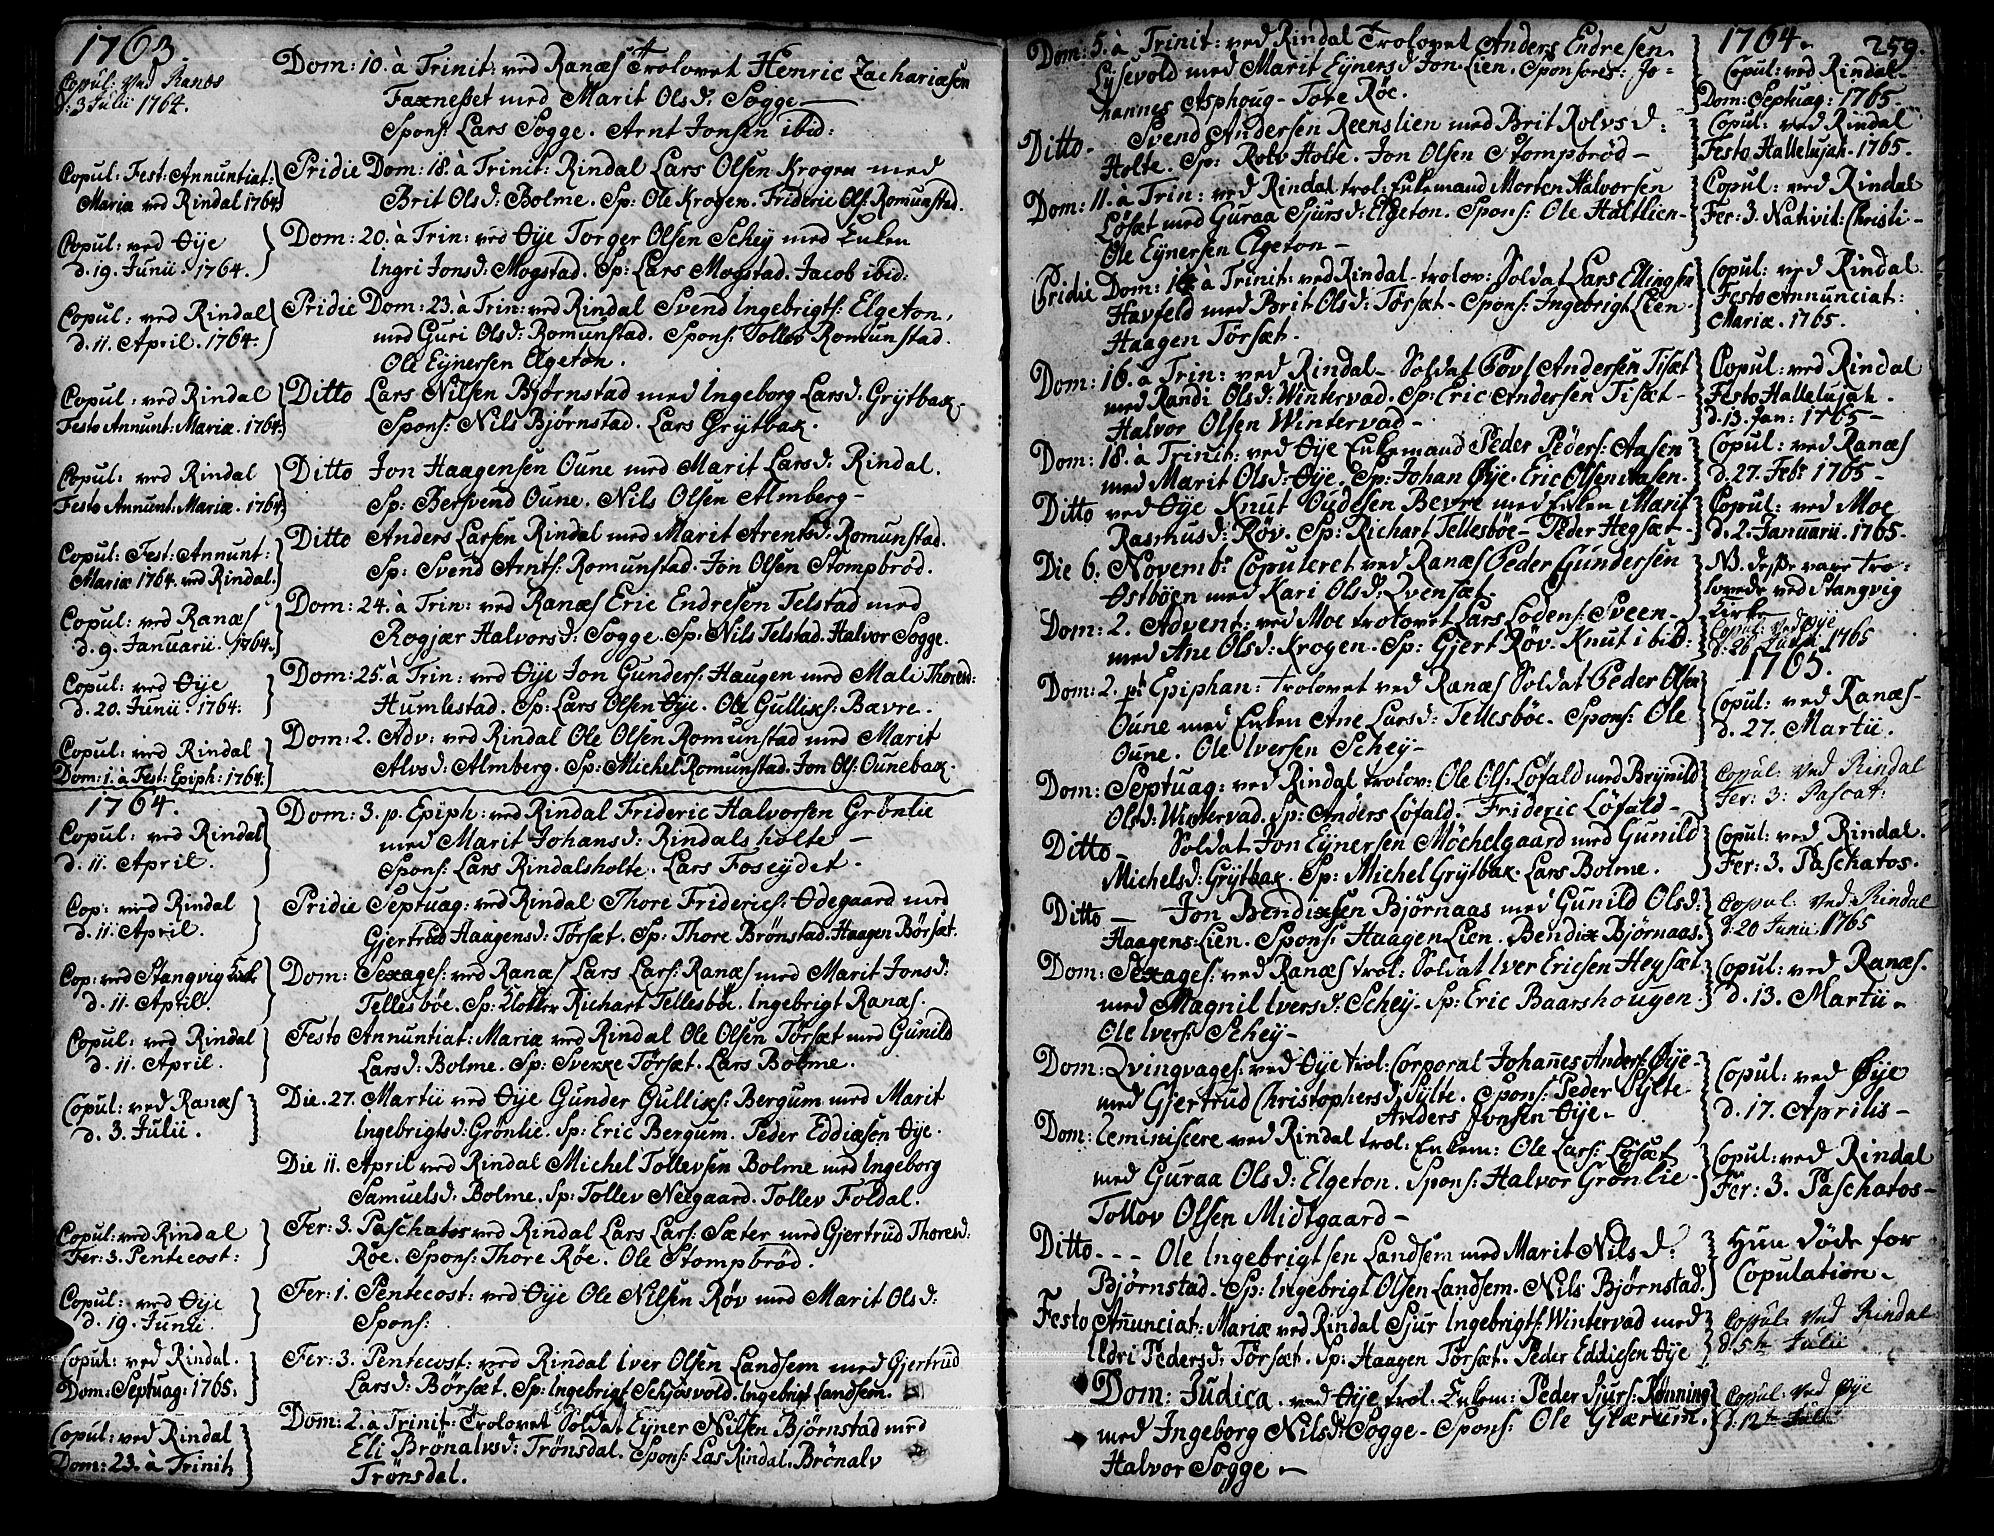 1763.
Copul: ved Ranæs
d. 3 Julii 1764.
Dom: 10. à Trinit: ved Ranæs Trolovet Henric Zachariæsen
Faxneset med Marit Olsd: Sogge —
Spons: Lars Sogge. Arnt Jonsen ibid:
Copul: Fest: Annuntiat:
Mariæ ved Rindal 1764.
Pridie Dom: 18. à Trinit: Rindal Lars Olsen Krogen med
Brit Olsd: Bolme. Sp: Ole Krogen. Frideric Ols: Romunstad.
Copul: ved Øÿe
d. 19. Junii. 1764.
Dom: 20. à Trin: ved Øÿe Torger Olsen Scheÿ med Enken
Ingri Jonsd: Mogstad. Sp: Lars Mogstad. Jacob ibid:
Copul: ved Rindal
d. 11. April. 1764.
Pridie Dom: 23. à Trin: ved Rindal Svend Ingebrigts: Elgeton,
med Guri Olsd: Romunstad. Spons: Tollev Romunstad.
Ole Eÿnersen Elgeton.
Copul: ved Rindal
Festo Annunt: Mariæ. 1764.
Ditto Lars Nilsen Bjørnstad med Ingeborg Larsd: Grÿtbak.
Spons: Nils Bjørnstad. Lars Grÿtbak.
Copul: ved Rindal
Festo Annunt: Mariæ. 1764.
Ditto Jon Haagensen Oune med Marit Larsd: Rindal.
Sp: Bersvend Oune. Nils Olsen Almberg —
Copul: Fest: Annunt:
Mariæ 1764. ved Rindal.
Ditto Anders Larsen Rindal med Marit Arentsd: Romunstad.
Sp: Svend Arnts: Romunstad. Jon Olsen Stompbrød.
Copul: ved Ranæs
d. 9. Januarii. 1764.
Dom: 24. à Trin: ved Ranæs Eric Endresen Telstad med
Rogjær Halvorsd: Sogge. Sp: Nils Telstad. Halvor Sogge.
Copul: ved Øÿe
d. 20. Junii. 1764.
Dom: 25. à Trin: ved Øÿe Jon Gunders: Haugen med Mali Thoresd:
Humlestad. Sp: Lars Olsen Øÿe. Ole Gulliks: Bævre.
Copul: ved Rindal
Dom: 1. à Fest: Epiph: 1764.
Dom: 2. Adv: ved Rindal Ole Olsen Romunstad med Marit
Alvsd: Almberg. Sp: Michel Romunstad. Jon Ols: Ounebak.
1764.
Copul: ved Rindal
d. 11. April.
Dom: 3. p. Epiph: ved Rindal Frideric Halvorsen Grønlie
med Marit Johansd: Rindalsholte —
Spons: Lars Rindalsholte. Lars Foseÿdet.
Cop: ved Rindal
d. 11. April.
Pridie Septuag: ved Rindal Thore Friderics: Ødegaard med
Gjertrud Haagensd: Torsæt. Sp: Thore Brønstad. Haagen Børsæt.
Cop: ved Stangvig Kirke
d. 11. April.
Dom: Sexages: ved Ranæs Lars Lars: Ranæs med Marit Jonsd:
Tellesbøe. Sp: Klokker Richart Tellesbøe. Ingebrigt Ranæs.
Copul: ved Rindal
d. 11. April.
Festo Annuntiat: Mariæ ved Rindal Ole Olsen Torsæt med Gunild
Larsd: Bolme. Sp: Svekke Torsæt. Lars Bolme.
Copul: ved Ranæs
d. 3. Julii.
Die. 27. Martii ved Øÿe Gunder Gulliks: Bergum med Marit
Ingebrigtsd: Grønlie. Sp: Eric Bergum. Peder Eddiksen Øÿe.
Die 11. April ved Rindal Michel Tollevsen Bolme med Ingeborg
Samuelsd: Bolme. Sp: Tollev Neegaard. Tollev Foldal.
Copul: ved Rindal
Fer: 3. Pentecost:
Fer: 3. Paschatos ved Rindal Lars Lars: Sæter med Gjertrud Thoresd:
Røe. Spons: Thore Røe. Ole Stompbrød.
Copul: ved Øÿe
d. 19. Junii.
Fer: 1. Pentecost: ved Øÿe Ole Nilsen Røv med Marit Olsd:
Spons:
Copul: ved Rindal.
Dom: Septuag: 1765.
Fer: 3. Pentecost: ved Rindal Iver Olsen Landsem med Gjertrud
Larsd: Børsæt. Sp: Ingebrigt Schjøsvold. Ingebrigt Landsem.
Copul: ved Rindal
Dom: 23. à Trinit:
Dom: 2. à Trinit: Trolovet Soldat Eÿner Nilsen Bjørnstad med
Eli Brønalvsd: Trønsdal. Spons: Las Rindal. Brønalv
Trønsdal.
1764. 259.
Dom: 5. à Trinit: ved Rindal Trolovet Anders Endresen
Lÿsevold med Marit Eÿnersd: Jon-Lien. Sponsores: Jo-
hannes Asphoug- Tore Røe.
Copul: ved Rindal
Dom: Septuag: 1765.
Ditto- Svend Andersen Reenslien med Brit Rolvsd:
Holte. Sp: Rolv Holte. Jon Olsen Stompbrød —
Copul: ved Rindal
Festo Hallelujah. 1765.
Dom: 11. à Trin: ved Rindal trol: Enkemand Morten Halvorsen
Løsæt med Guraa Sjursd: Elgeton. Spons: Ole Haltlien-
Ole Eÿnersen Elgeton —
Copul: ved Rindal
Fer: 3. Nativit: Christi —
Pridie Dom: à Trinit: ved Rindal- trolov: Soldat Lars Ellingsen
Havfeld med Brit Olsd: Torsæt- Spons: Ingebrigt Lien-
Haagen Torsæt.
Copul: ved Rindal
Festo Annunciat:
Mariæ. 1765.
Dom: 16. à Trin: ved Rindal- Soldat Povl Andersen Tisæt
med Randi Olsd: Wintervad. Sp: Eric Andersen Tisæt-
Halvor Olsen Wintervad —
Copul: ved Rindal
Festo Hallelujah.
d. 13. Jan: 1765 —
Dom: 18. à Trinit: ved Øÿe Enkemand Peder Peders: Aasen
med Marit Olsd: Øÿe. Sp: Johan Øÿe. Eric Olsen Aasen.
Copul: ved Ranæs
d. 27. Febr: 1765 —
Ditto ved Øÿe Knut Oudesen Bevre med Enken Marit
Rasmusd: Røv. Sp: Richart Tellesbøe- Peder Hegsæt-
Copul: ved Moe
d. 2. Januarii. 1765-
Die 6. Novembr: Copuleret ved Ranæs Peder Gundersen
Østbøen med Kari Olsd: Qvensæt.
NB. disse vare tro-
lovede ved Stangvig
Kirke
Dom: 2. Advent: ved Moe trolovet Lars Lodens: Sveen-
med Ane Olsd: Krogen. Sp: Gjert Røv. Knut ibid:
Copul: ved Øÿe
d: 26 1765
1765.
Dom: 2. pt Epiphan: trolovet ved Ranæs Soldat Peder Olsen
Oune med Enken Ane Larsd: Tellesbøe. Spons: Ole
Oune. Ole Iversen Scheÿ-
Copul: ved Ranæs-
d. 27. Martii.
Dom: Septuag: ved Rindal trolov: Ole Ols: Løfald med Brÿnild
Olsd: Wintervad. Sp: Anders Løfald. Frideric Løfald-
Copul: ved Rindal
Fer: 3: Pascat:
Ditto- Soldat Jon Eÿnersen Møchelgaard med Gunild
Michelsd: Grÿtbak. Sp: Michel Grÿtbak. Lars Bolme.
Copul: ved Rindal.
Fer: 3. Paschatos.
Ditto — Jon Bendixsen Bjørnaas med Gunild Olsd:
Haagens-Lien. Spons: Haagen Lien. Bendix Bjørnaas.
Copul: ved Rindal
d: 20 Junii 1765
Dom: Sexages: ved Ranæs trol: Soldat Iver Ericsen Hegsæt
med Magnil Iversd: Scheÿ. Sp: Eric Baarshougen.
Ole Ivers: Scheÿ-
Copul: ved Ranæs.
d. 13. Martii-
Dom: Qvinqvages: ved Øÿe trol: Corporal Johañes Anders: Øÿe-
med Gjertrud Christophersd: Sÿlte. Spons: Peder Sÿlte-
Anders Jonsen Øÿe-
Copul: ved Øÿe
d. 17. Aprilis —
Dom: Reminiscere ved Rindal trol: Enkem: Ole Lars: Løsæt
med Guraa Olsd: Elgeton. Spons: Halvor Grønlie-
Tollov Olsen Midtgaard-
Copul: ved Rindal
Fer: 3. Paschatos-
Ditto - - - Ole Ingebrigtsen Landsem med Marit Nilsd:
Bjørnstad. Sp: Ingebrigt Olsen Landsem. Nils Bjørnstad.
Hun døde for
Copulation.
Festo Añunciat: Mariæ ved Rindal Sjur Ingebrigts: Wintervad med
Ildri Pedersd: Torsæt. Sp: Haagen Torsæt. Peder Eddicsen Øÿe
Copul: ved Rindal
d: 5te Julii
Dom: Judica. ved Øÿe trol: Enkem: Peder Sjurs: Rønning
med Ingeborg Nilsd: Sogge- Spons: Ole Glærum.
Halvor Sogge —
Copul: ved Øÿe
d. 12te Julii